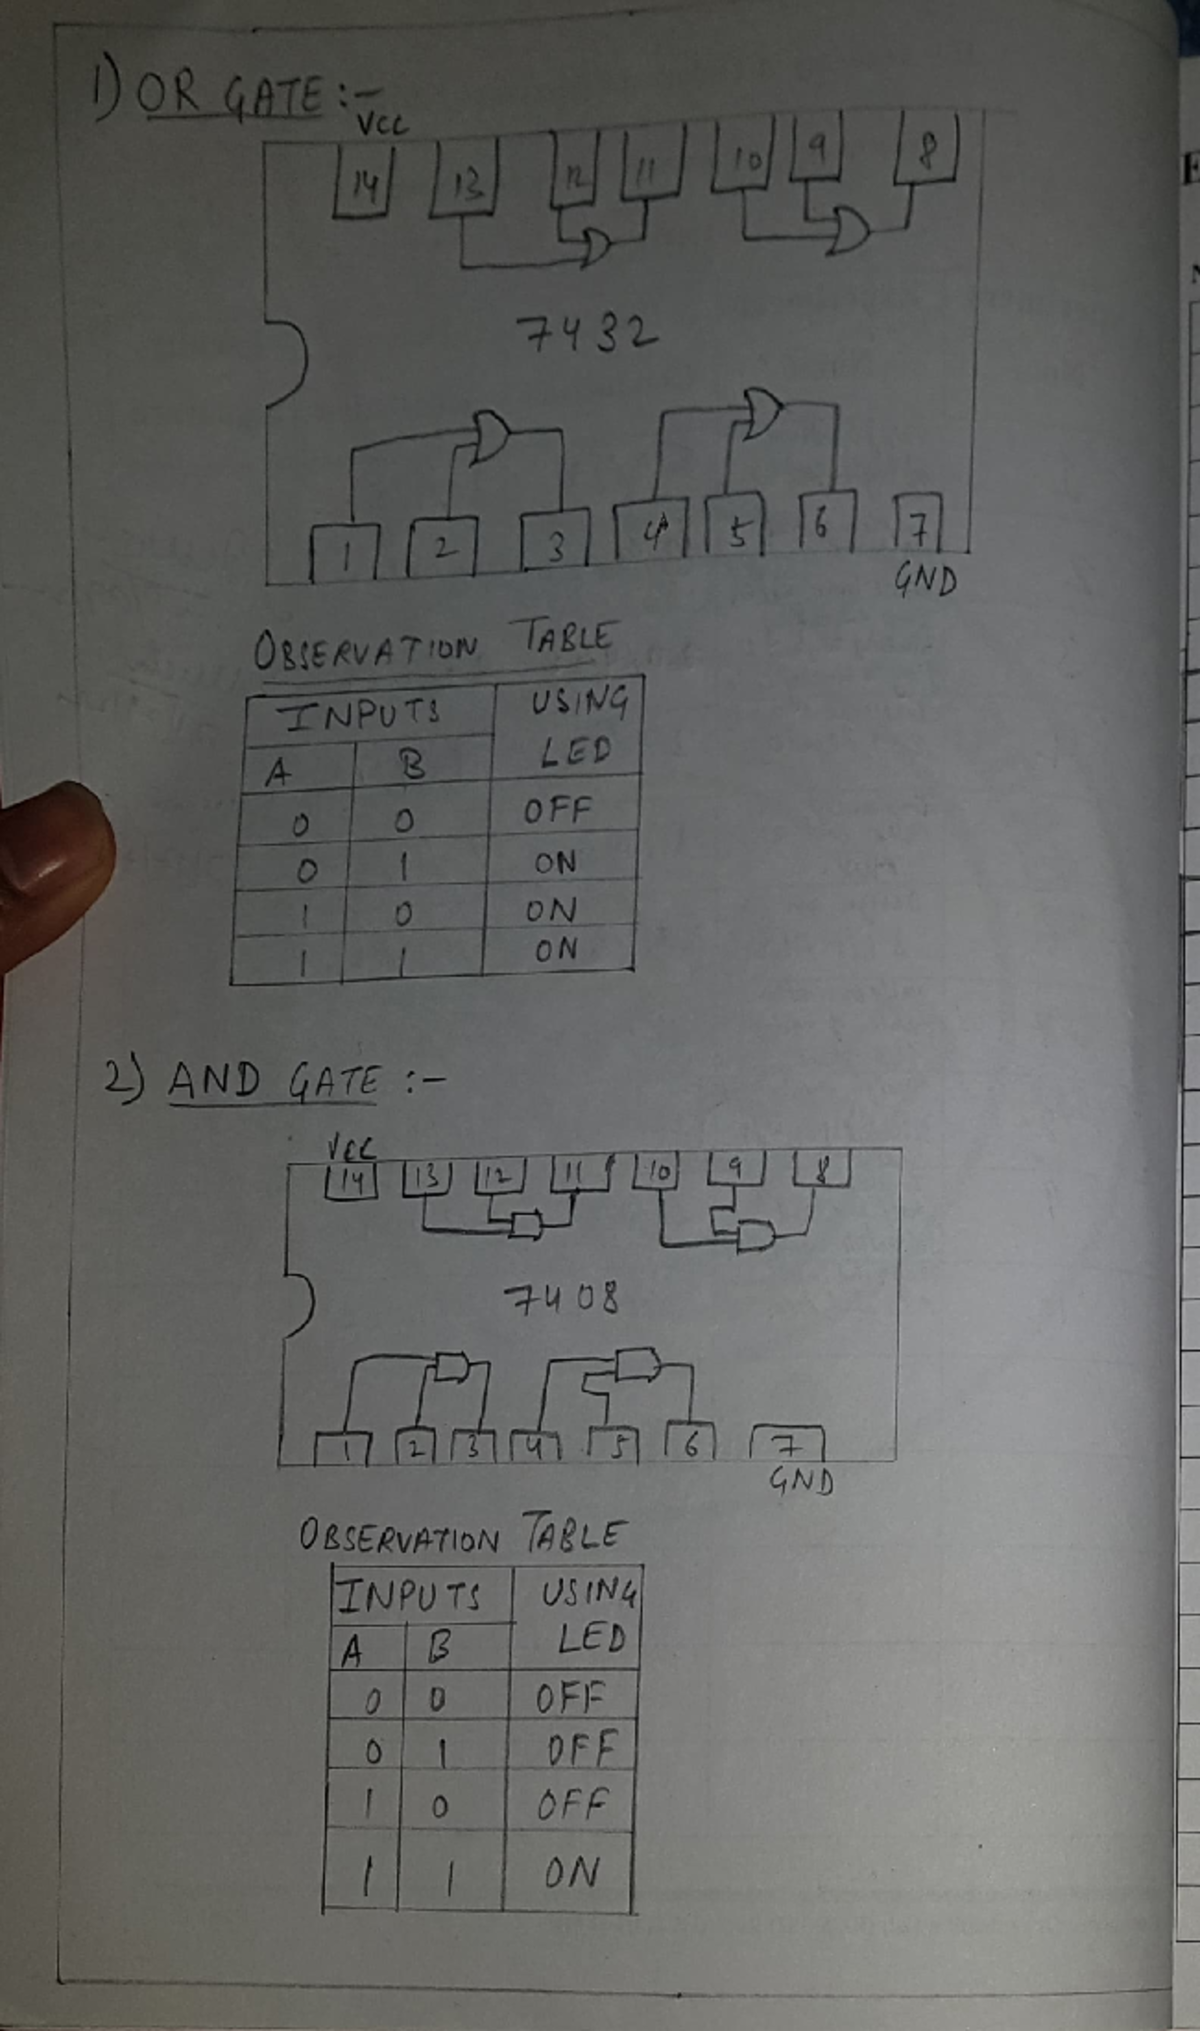 1) OR GATE :-
VCC
14 13 12 11 10 9 8
7432
1 2 3 4 5 6 7
GND
OBSERVATION TABLE
INPUTS USING
A B LED
0 0 OFF
0 1 ON
1 0 ON
1 1 ON
2) AND GATE :-
VCC
14 13 12 11 10 9 8
7408
1 2 3 4 5 6 7
GND
OBSERVATION TABLE
INPUTS USING
A B LED
0 0 OFF
0 1 OFF
1 0 OFF
1 1 ON